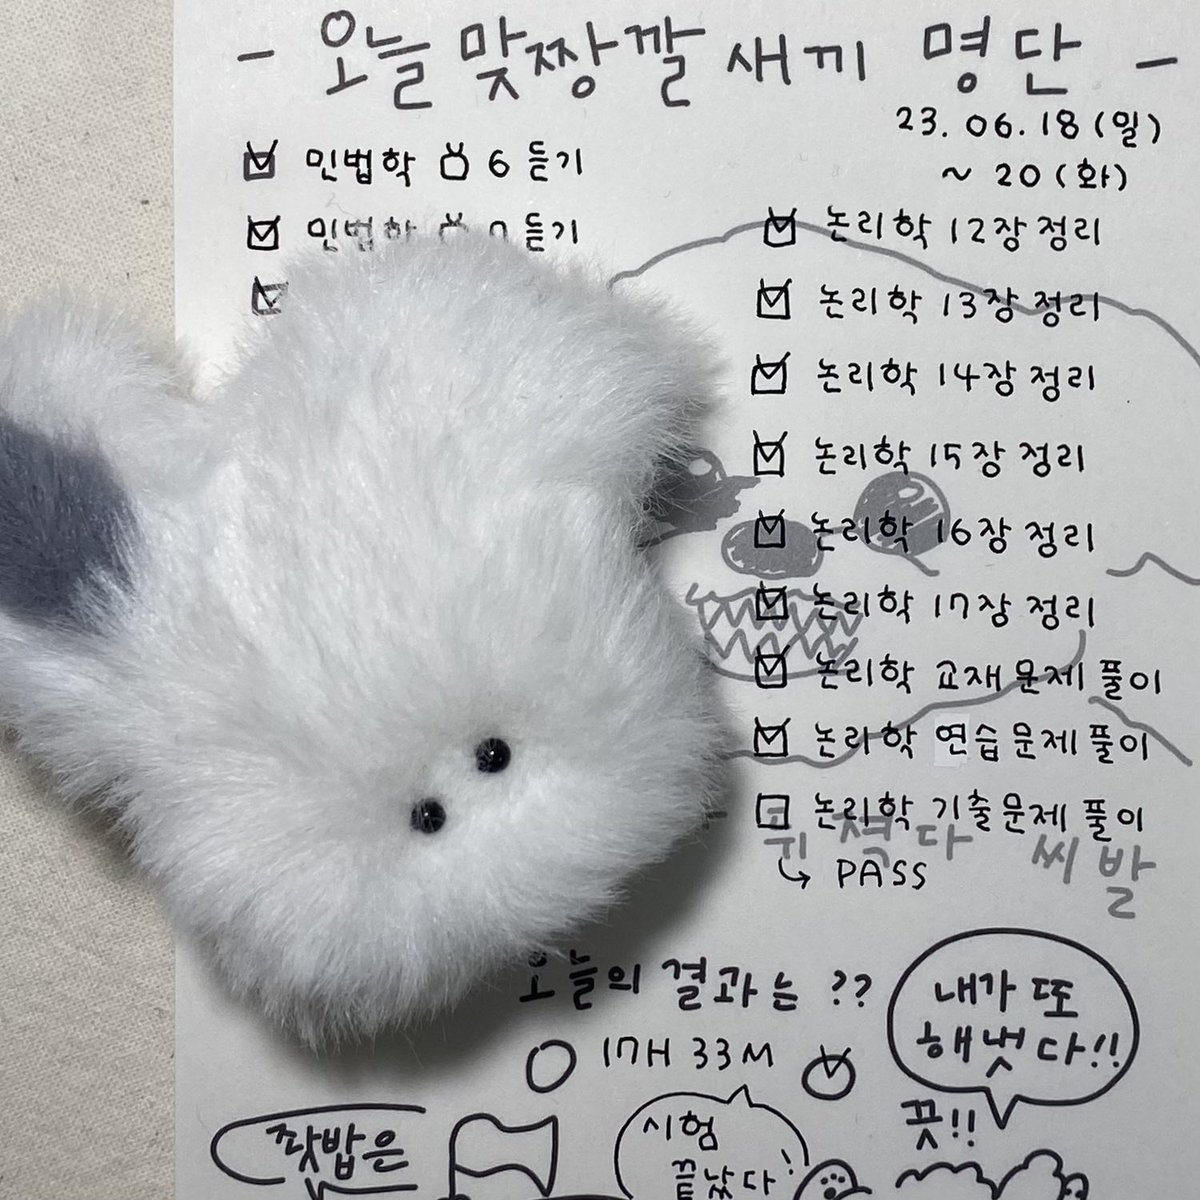 - 오늘 맞짱깔 새끼 명단 -
23. 06. 18 (일)
~ 20 (화)
민법학 6 듣기
민법학 듣기
논리학 12장 정리
논리학 13장 정리
논리학 14장 정리
논리학 15장 정리
논리학 16장 정리
논리학 17장 정리
논리학 교재 문제 풀이
논리학 연습 문제 풀이
논리학 기출 문제 풀이
뒤졌다 씨발
PASS
오늘의 결과는 ??
17H 33M
내가 또
해냇다!!
끗!!
시험
끝났다!
짯밥은